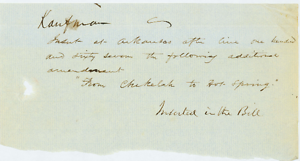 Kaufman
Insert at Arkansas after line one hundred
and sixty seven the following additional
amendment
"From Chekelah to Hot Spring."
Inserted in the Bill